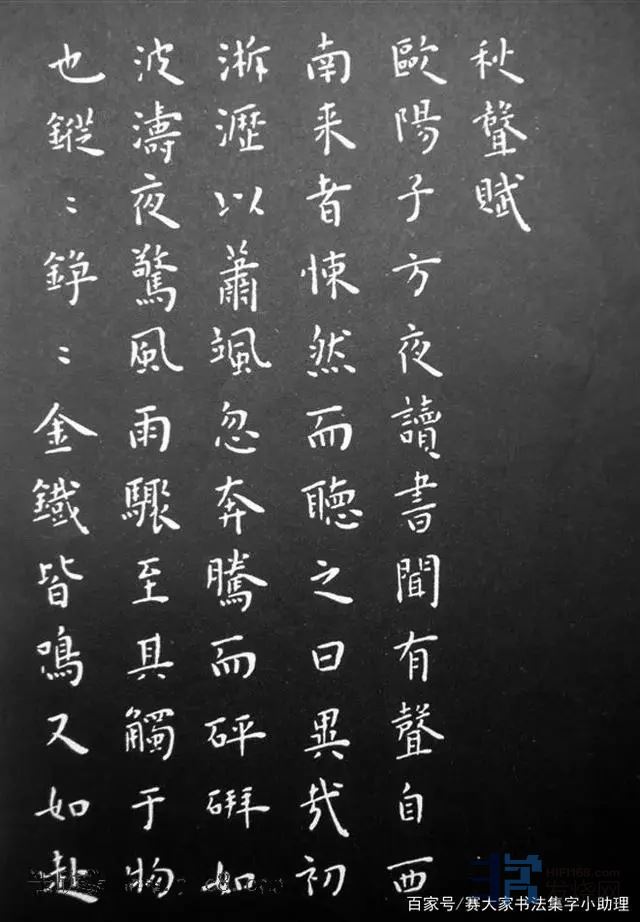 秋聲賦
歐陽子方夜讀書聞有聲自西
南来者悚然而聽之曰異哉初
淅瀝以蕭颯忽奔騰而砰硑如
波濤夜驚風雨驟至其觸于物
也鏦〻錚〻金鐵皆鳴又如赴
HIFI168.com
发烧网
百家号/赛大家书法集字小助理